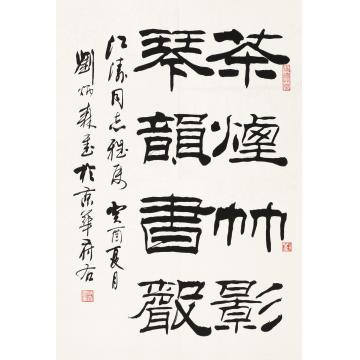 茶煙竹影
琴韻書聲
江濤同志雅屬 癸酉夏月
劉炳森並於京華府右